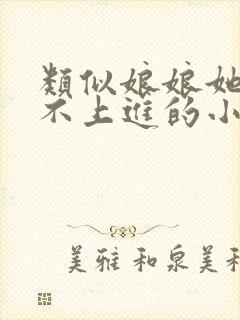 類似娘娘她
不上進的小
美雅和泉美和